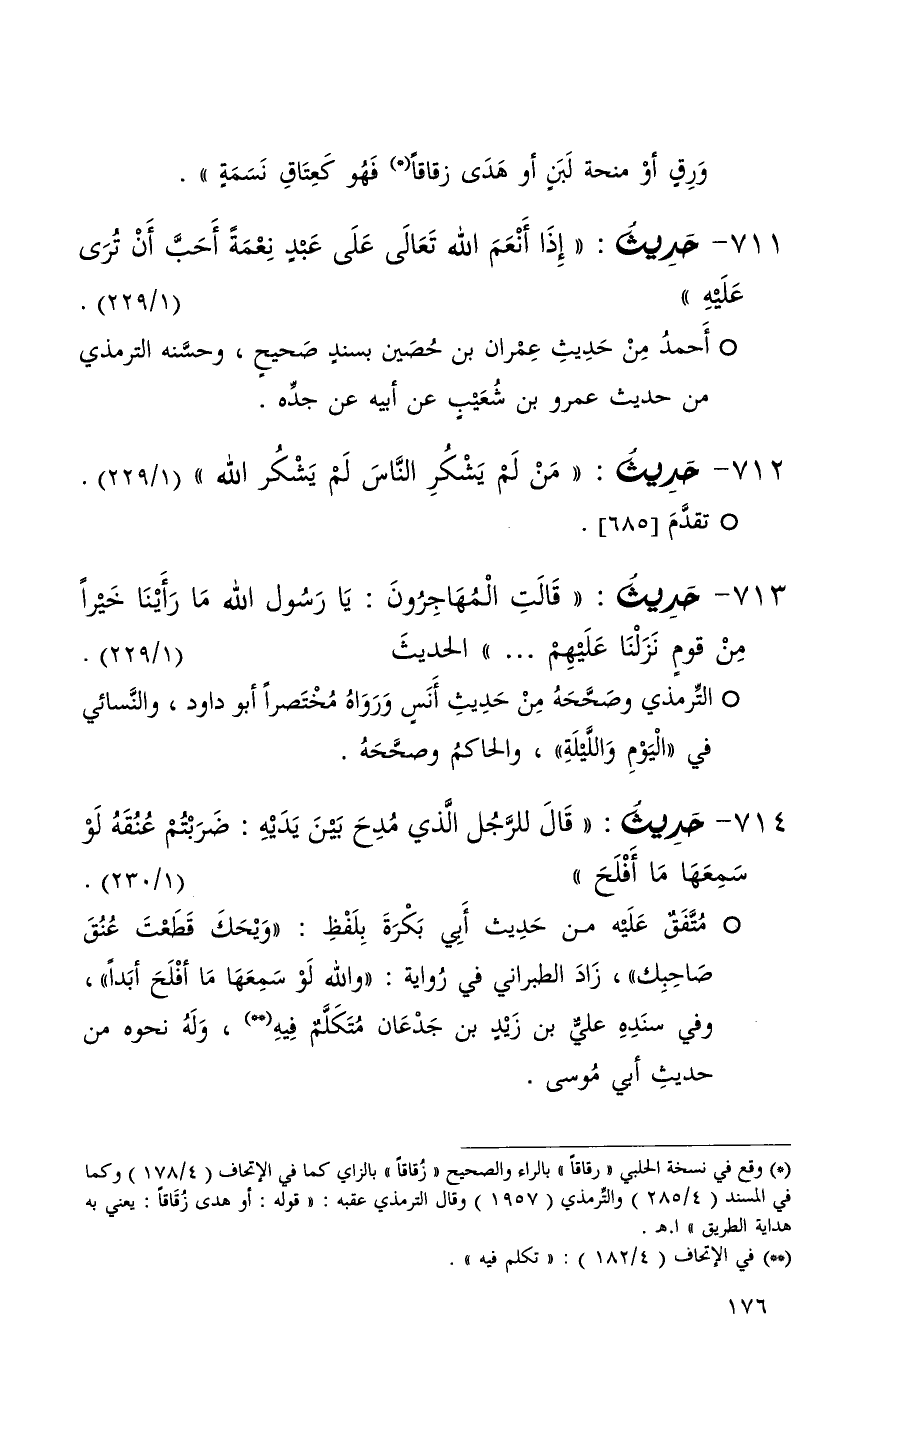 وَرِقٍ أوْ منحة لَبَنٍ أو هَدَى زقاقاً(*) فَهُو كَعِتَاقِ نَسَمَةٍ » .
٧١١- حَدِيثُ : « إِذَا أَنْعَمَ الله تَعَالَى عَلَى عَبْدٍ نِعْمَةً أَحَبَّ أَنْ تُرَى
عَلَيْهِ » (٢٢٩/١) .
○ أَحمدُ مِنْ حَدِيثِ عِمْران بن حُصَين بسندٍ صَحيحٍ ، وحسَّنه الترمذي
من حديث عمرو بن شُعَيْبٍ عن أبيه عن جدِّه .
٧١٢- حَدِيثُ : « مَنْ لَمْ يَشْكُرِ النَّاسَ لَمْ يَشْكُر الله » (٢٢٩/١) .
○ تقدَّمَ [٦٨٥] .
٧١٣- حَدِيثُ : « قَالَتِ الْمُهَاجِرُونَ : يَا رَسُول الله مَا رَأَيْنَا خَيْراً
مِنْ قومٍ نَزَلْنَا عَلَيْهِمْ ... » الحديثَ (٢٢٩/١) .
○ التِّرمذي وصَحَّحَهُ مِنْ حَدِيثِ أَنَسٍ وَرَوَاهُ مُخْتَصراً أبو داود ، والنَّسائي
في «الْيَوْمِ وَاللَّيْلَةِ» ، والحاكمُ وصحَّحَهُ .
٧١٤- حَدِيثُ : « قَالَ للرَّجُل الَّذي مُدِحَ بَيْنَ يَدَيْهِ : ضَرَبْتُمْ عُنُقَهُ لَوْ
سَمِعَهَا مَا أَفْلَحَ » (٢٣٠/١) .
○ مُتَّفَقٌ عَلَيْه مـن حَدِيث أَبِي بَكْرَةَ بِلَفْظِ : «وَيْحَكَ قَطَعْتَ عُنُقَ
صَاحِبِك» ، زَادَ الطبراني في رُواية : «والله لَوْ سَمِعَهَا مَا أفْلَحَ أبَداً» ،
وفي سنَدِهِ عليٌّ بن زَيْدٍ بن جَدْعَان مُتَكَلَّمٌ فِيهِ(**) ، وَلَهُ نحوه من
حديثِ أبي مُوسى .
(*) وقع في نسخة الحلبي « رقاقاً » بالراء والصحيح « زُقاقاً » بالزاي كما في الإتحاف ( ١٧٨/٤ ) وكما
في المسند ( ٢٨٥/٤ ) والتِّرمذي ( ١٩٥٧ ) وقال الترمذي عقبه : « قوله : أو هدى زُقَاقاً : يعني به
هداية الطريق » ا.هـ .
(**) في الإتحاف ( ١٨٢/٤ ) : « تكلم فيه » .
١٧٦